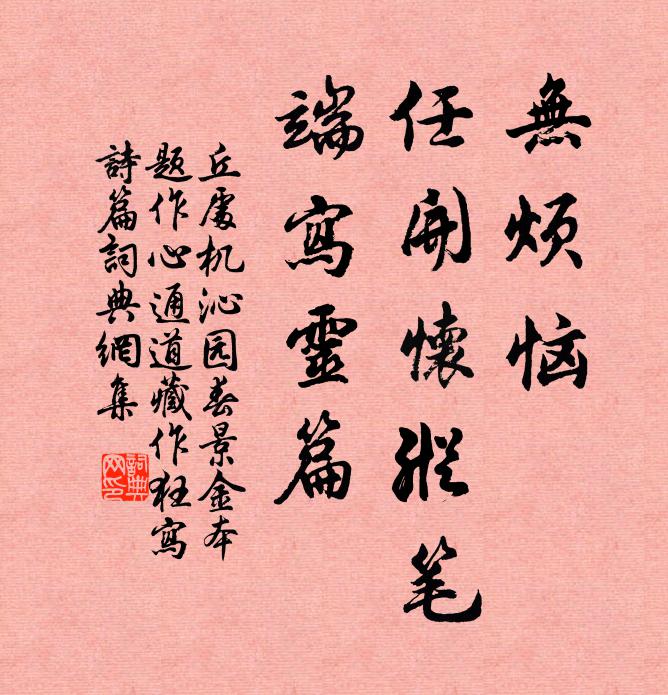 無烦恼
任開懷縱笔
端寫靈篇
丘處机沁园春景金本
题作心通道藏作狂寫
詩篇詞典網集
詞典网印